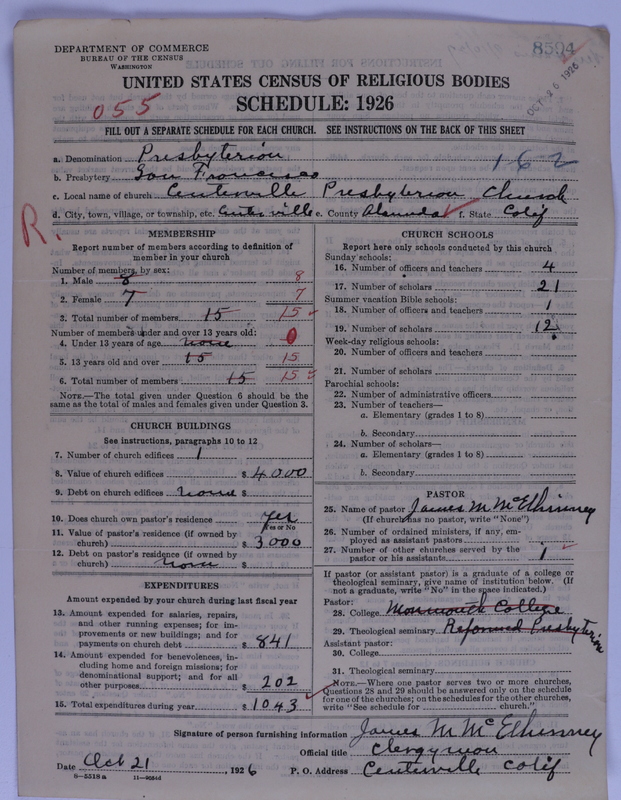 DEPARTMENT OF COMMERCE
BUREAU OF THE CENSUS
WASHINGTON
8594
OCT 26 1926
UNITED STATES CENSUS OF RELIGIOUS BODIES
SCHEDULE: 1926
055
FILL OUT A SEPARATE SCHEDULE FOR EACH CHURCH. SEE INSTRUCTIONS ON THE BACK OF THIS SHEET
a. Denomination Presbyterian
162
b. Presbytery San Francisco
c. Local name of church Centerville Presbyterian Church
d. City, town, village, or township, etc. Centerville e. County Alameda f. State Calif
R.
MEMBERSHIP
Report number of members according to definition of
member in your church
Number of members, by sex:
1. Male 8 8
2. Female 7 7
3. Total number of members 15 15
Number of members under and over 13 years old:
4. Under 13 years of age none 0
5. 13 years old and over 15 15
6. Total number of members 15 15
NOTE.—The total given under Question 6 should be
same as the total of males and females given under Question 3.
CHURCH BUILDINGS
See instructions, paragraphs 10 to 12
7. Number of church edifices 1
8. Value of church edifices $ 4000
9. Debt on church edifices none $
10. Does church own pastor's residence yes
Yes or No
11. Value of pastor's residence (if owned by
church) $ 3000
12. Debt on pastor's residence (if owned by
church) none $
EXPENDITURES
Amount expended by your church during last fiscal year
13. Amount expended for salaries, repairs,
and other running expenses; for im-
provements or new buildings; and for
payments on church debt $ 841
14. Amount expended for benevolences, in-
cluding home and foreign missions; for
denominational support; and for all
other purposes $ 202
15. Total expenditures during year $ 1043
CHURCH SCHOOLS
Report here only schools conducted by this church
Sunday schools:
16. Number of officers and teachers 4
17. Number of scholars 21
Summer vacation Bible schools:
18. Number of officers and teachers 1
19. Number of scholars 12
Week-day religious schools:
20. Number of officers and teachers
21. Number of scholars
Parochial schools:
22. Number of administrative officers
23. Number of teachers—
a. Elementary (grades 1 to 8)
b. Secondary
24. Number of scholars—
a. Elementary (grades 1 to 8)
b. Secondary
PASTOR
25. Name of pastor James M McElhinney
(If church has no pastor, write "None")
26. Number of ordained ministers, if any, em-
ployed as assistant pastors
27. Number of other churches served by the
pastor or his assistants 1
If pastor (or assistant pastor) is a graduate of a college or
theological seminary, give name of institution below. (If
not a graduate, write "No" in the space indicated.)
Pastor:
28. College Monmouth College
29. Theological seminary Reformed Presbyterian
Assistant pastor:
30. College
31. Theological seminary
NOTE.—Where one pastor serves two or more churches,
Questions 28 and 29 should be answered only on the schedule
for one of the churches; on the schedules for the other churches,
write "See schedule for church."
Signature of person furnishing information James M McElhinney
Official title Clergyman
Date Oct 21, 1926 P. O. Address Centerville Calif
8—5518a